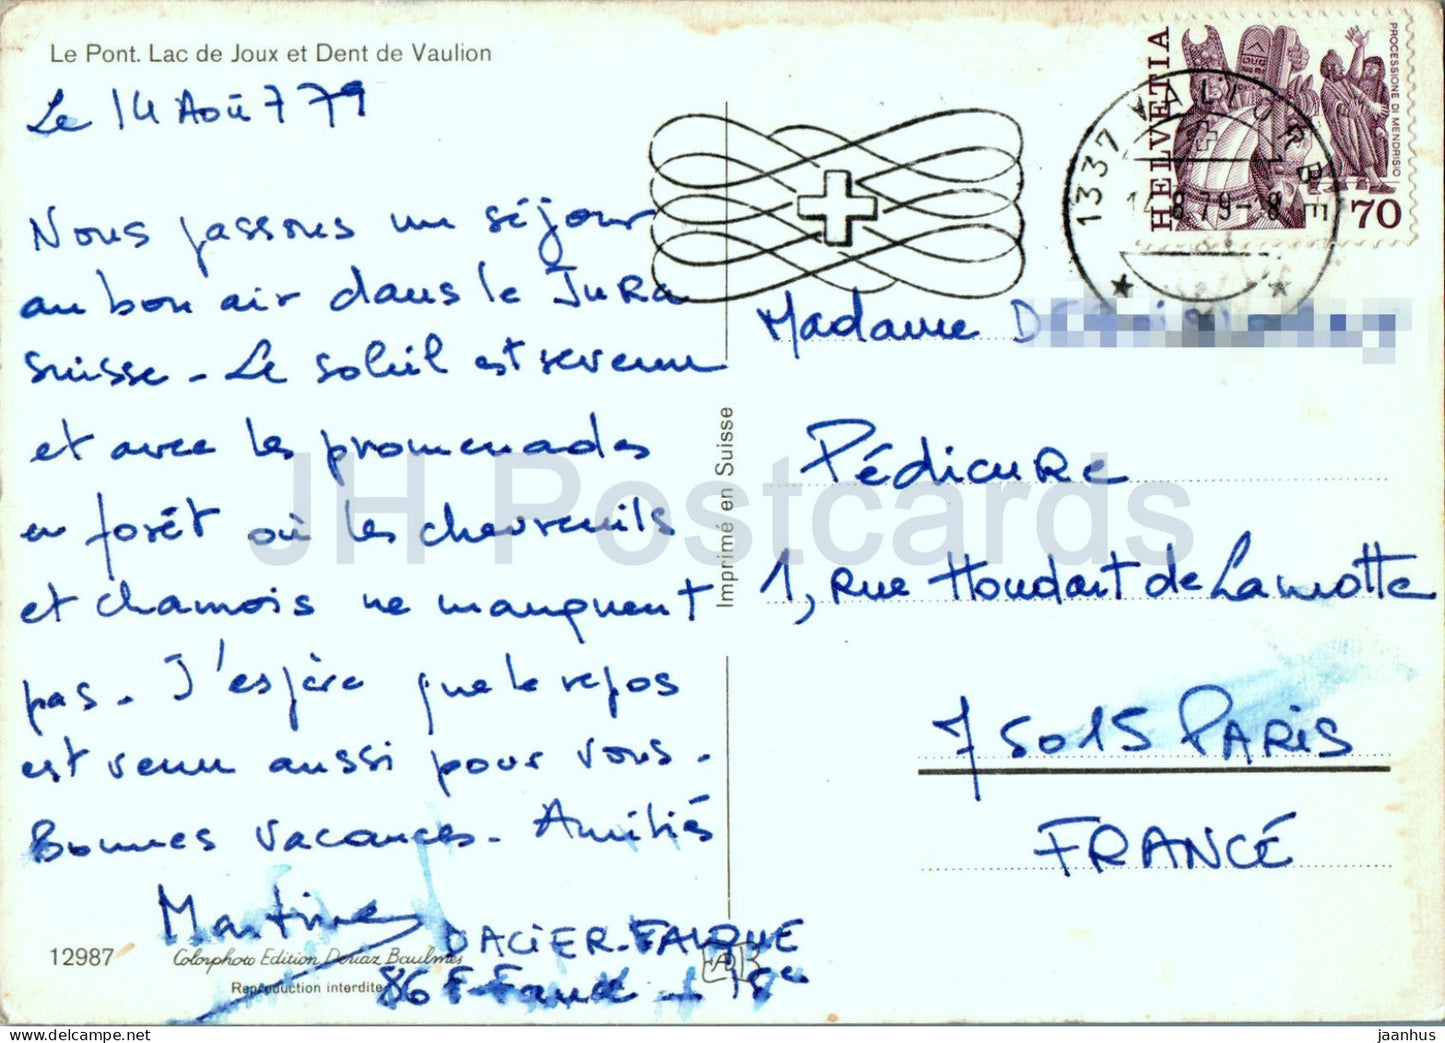 Le Pont. Lac de Joux et Dent de Vaulion
Le 14 Août 79
Nous passons un séjour
au bon air dans le Jura
suisse - Le soleil est revenu
et avec les promenades
en forêt où les chevreuils
et chamois ne manquent
pas - J'espère que le repos
est venu aussi pour vous -
Bonnes vacances - Amitiés
Martine
DACIER-FALQUE
12987
Colorphoto Edition Douaz Baulmes
Reproduction interdite
Imprimé en Suisse
HELVETIA
PROCESSIONE DI MENDRISIO
70
1337 VALLORBE
14.8.79-18
Madame
Pédicure
1, rue Houdart de Lamotte
75015 PARIS
FRANCE
JH Postcards
jaanhus